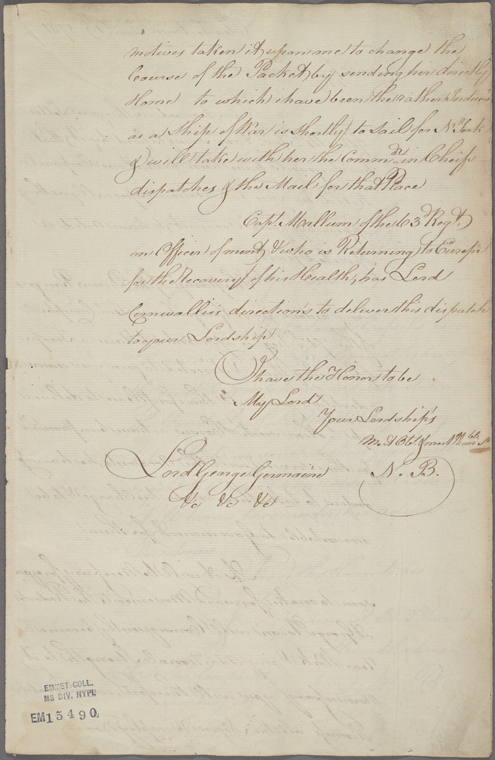 motives taken it upon me to change the
Course of the Packet, by sending her directly
Home to which i have been the rather Induced
as a Ship of War is Shortly to Sail for N. York
& will take with her the Commr. in Chiefs
dispatches & the Mail for that Place
Capt. Mallum of the 63d Regt.
an Officer of merit & who is Returning to Europe
for the Recovery of his Health, has Lord
Cornwallis's directions to deliver this dispatch
to your Lordship
I have the Honor to be
My Lord
Your Lordship's
Mt. Obt. & most Hum. S
N. B.
Lord George Germaine
&c &c &c
EMMET COLL.
MS DIV. NYPL
EM15490